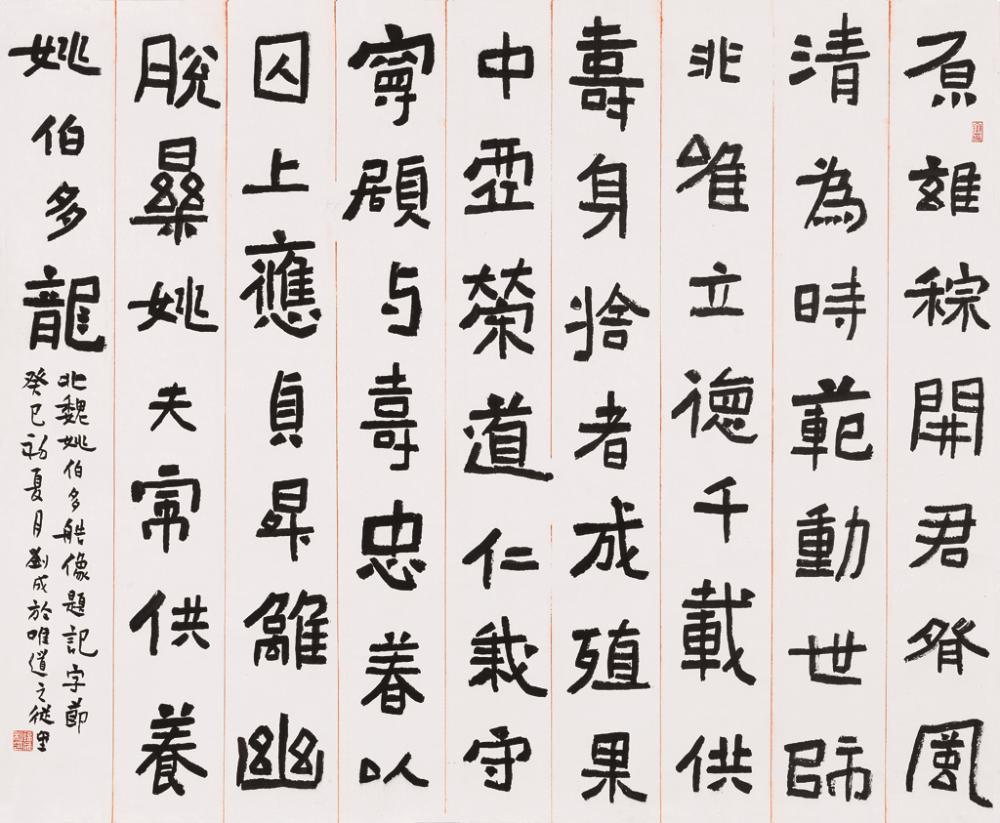 雖開君脊風
清為時範動世師
非唯立德千載供
壽身捨者成殖果
中亞榮道仁義守
寧顧与壽忠春以
囚上應貞昇離幽
脫桑姚夫常供養
姚伯多龍
北魏姚伯多艁像題記字節
癸巳初夏月劉成於唯道之從里